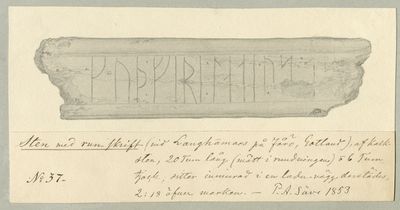 ᚴᚢᚦᚠᛁᚱ
Sten med runskrift (vid Langhämars på Fårö, Gotland), af kalk-
sten, 20 Tum lång (mätt i rundningen) o 6 Tum
No 37. tjock, sitter inmurad i en ladu-vägg derstädes,
2:18 öfver marken. — P. A. Säve 1853